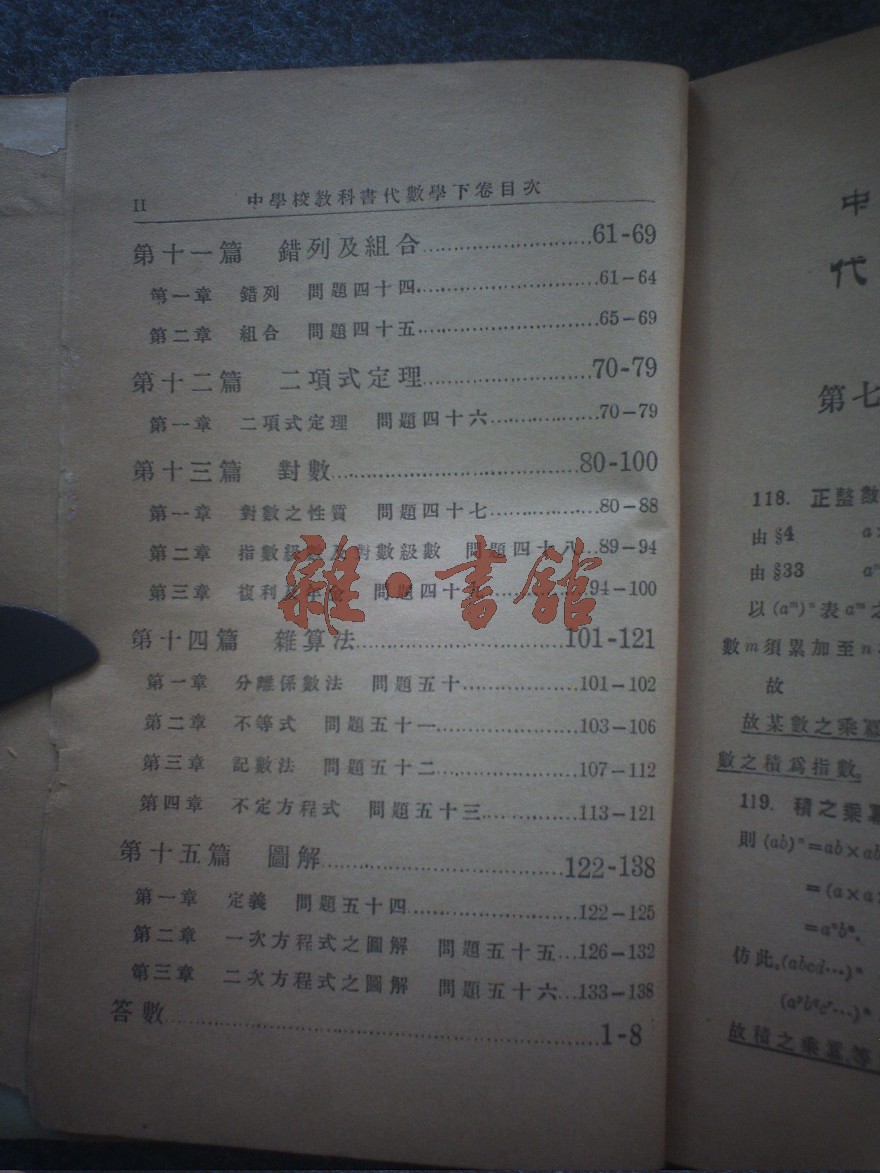 II 中學校教科書代數學下卷目次
第十一篇 錯列及組合 61-69
第一章 錯列 問題四十四 61-64
第二章 組合 問題四十五 65-69
第十二篇 二項式定理 70-79
第一章 二項式定理 問題四十六 70-79
第十三篇 對數 80-100
第一章 對數之性質 問題四十七 80-88
第二章 指數級數及對數級數 問題四十八 89-94
第三章 複利及年金 問題四十九 94-100
第十四篇 雜算法 101-121
第一章 分離係數法 問題五十 101-102
第二章 不等式 問題五十一 103-106
第三章 記數法 問題五十二 107-112
第四章 不定方程式 問題五十三 113-121
第十五篇 圖解 122-138
第一章 定義 問題五十四 122-125
第二章 一次方程式之圖解 問題五十五 126-132
第三章 二次方程式之圖解 問題五十六 133-138
答數 1-8
雜·書館
中
代
第七
118. 正整數
由§4
由§33
以(aᵐ)ⁿ表aᵐ之
數m須累加至n
故
故某數之乘冪
數之積爲指數。
119. 積之乘冪
則(ab)ⁿ=ab×ab
=(a×a
=aⁿbⁿ.
仿此。(abcd…)ⁿ
故積之乘冪,等